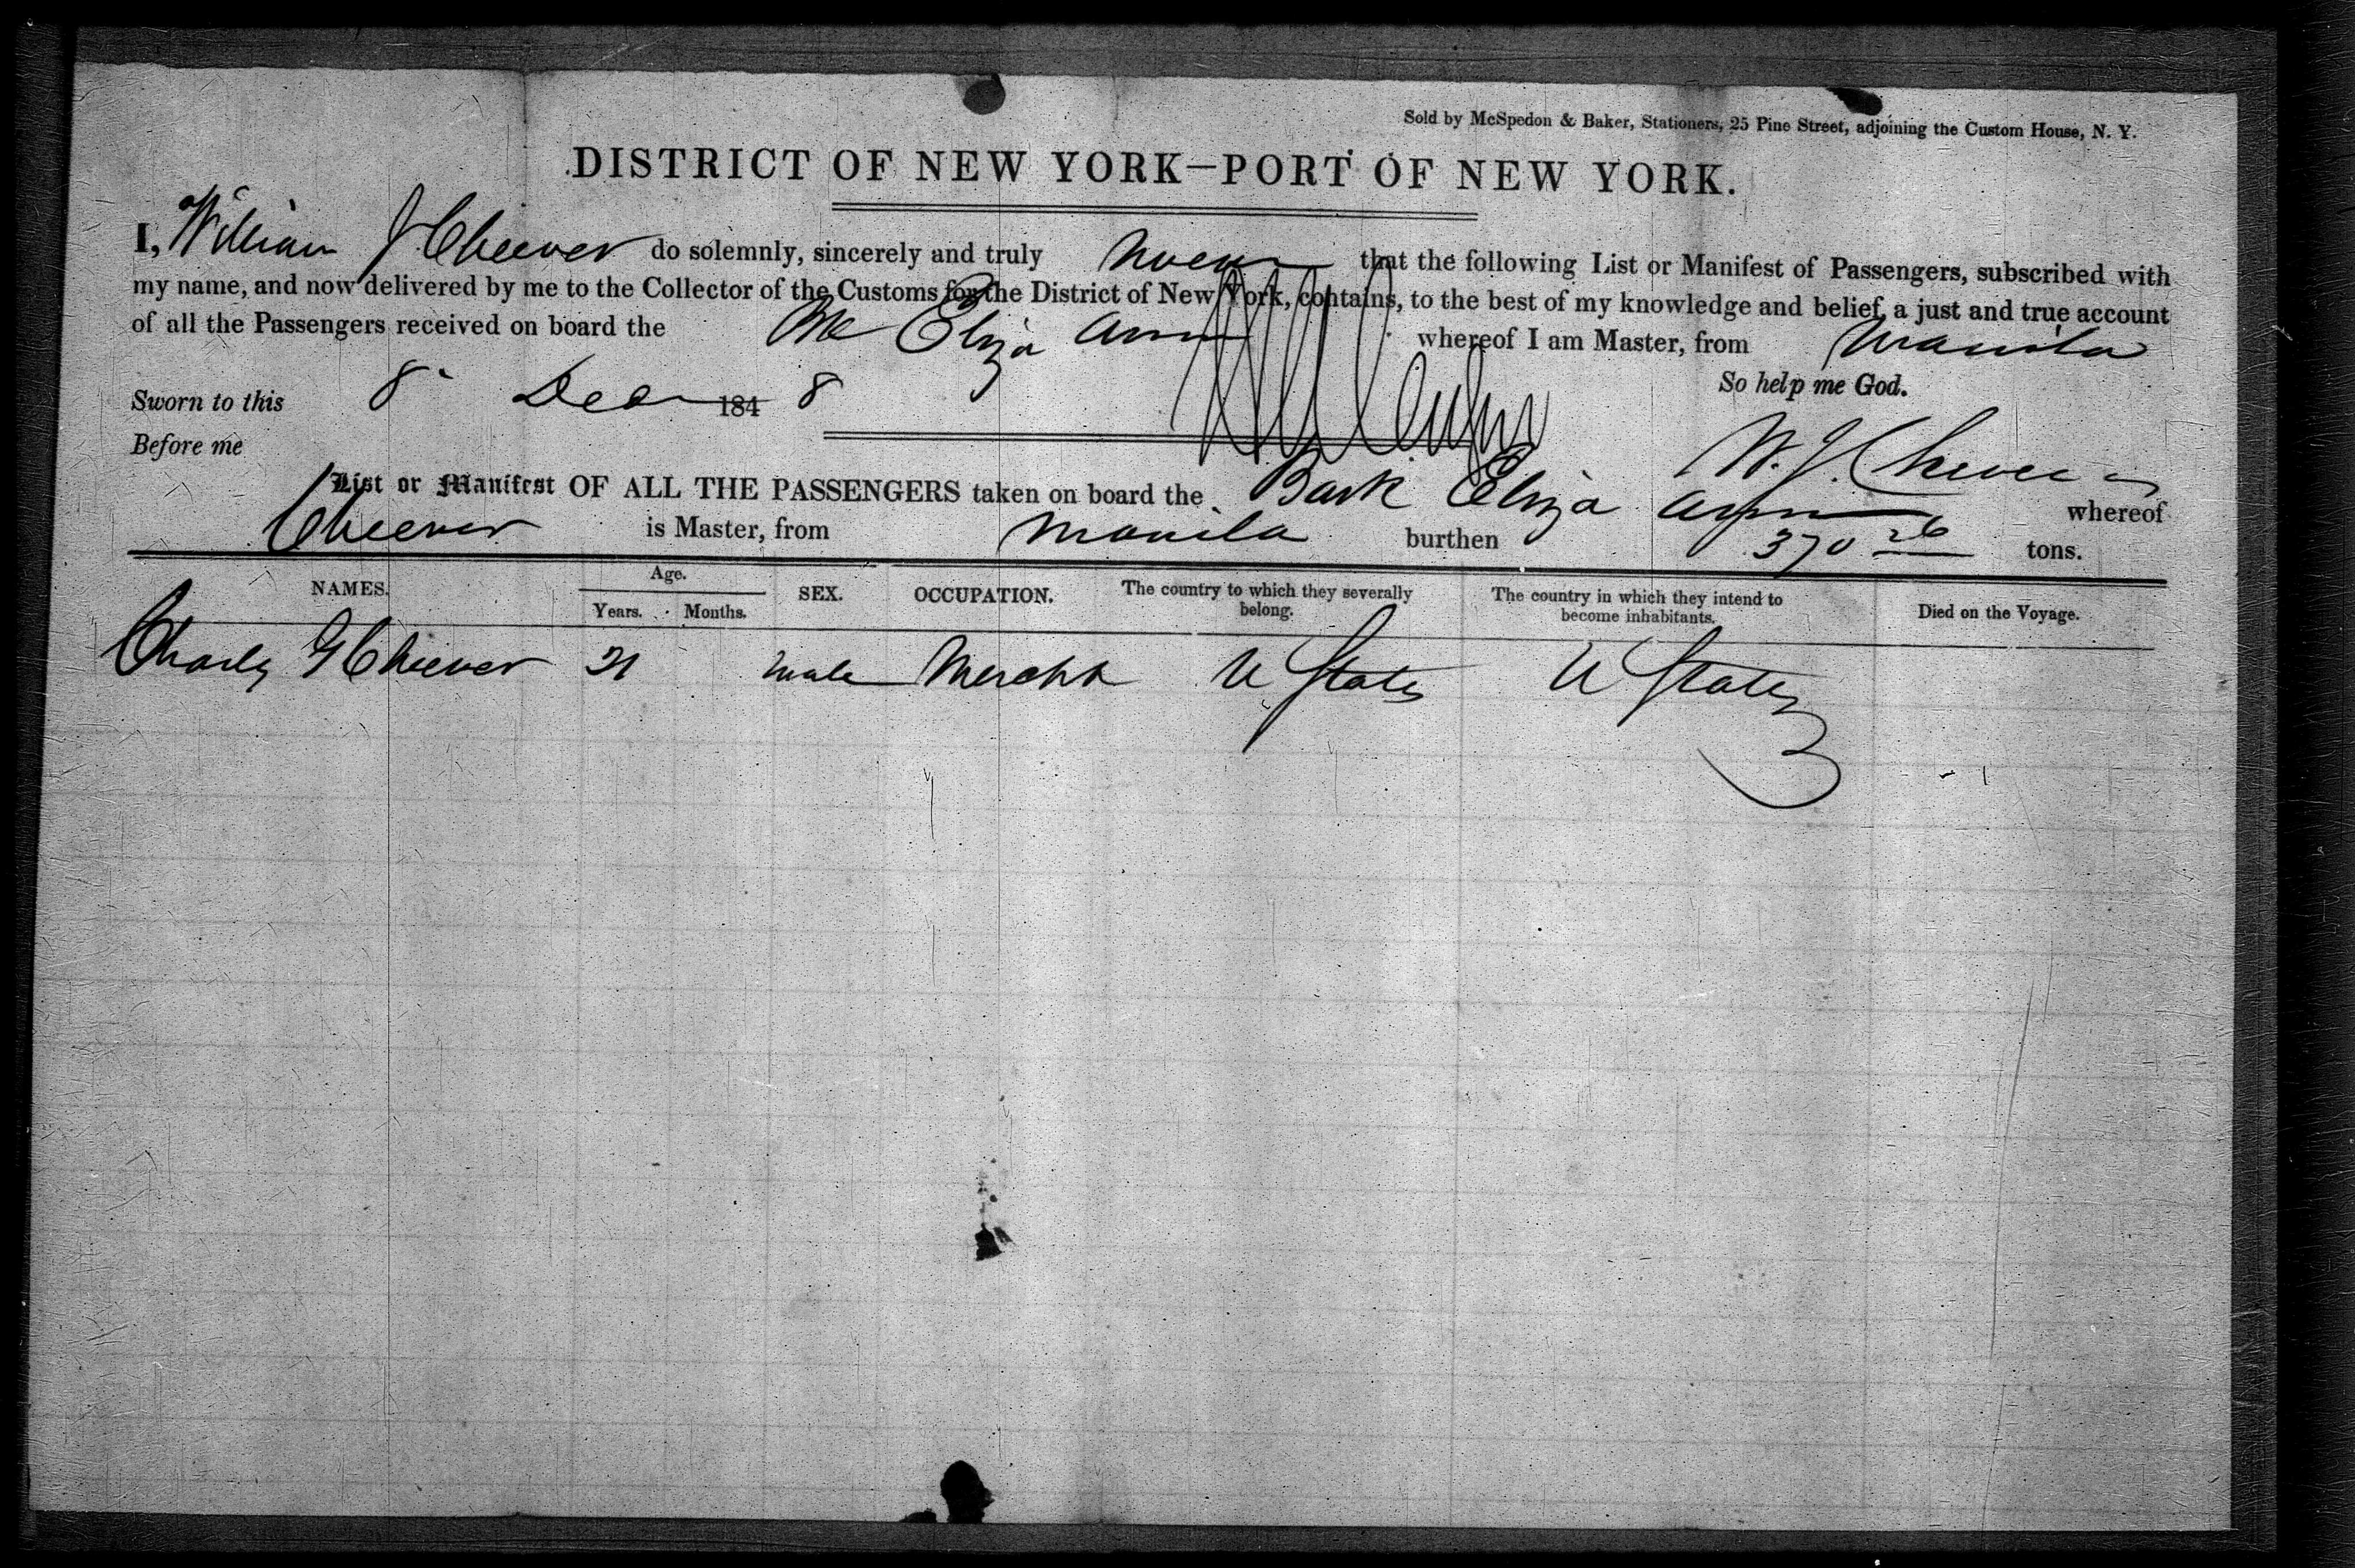 Sold by McSpedon & Baker, Stationers, 25 Pine Street, adjoining the Custom House, N. Y.
DISTRICT OF NEW YORK—PORT OF NEW YORK.
I, William J Cheever do solemnly, sincerely and truly swear that the following List or Manifest of Passengers, subscribed with
my name, and now delivered by me to the Collector of the Customs for the District of New York, contains, to the best of my knowledge and belief, a just and true account
of all the Passengers received on board the Bk Eliza Ann whereof I am Master, from Manila
So help me God.
Sworn to this 8 Dec 184 8
Before me
W. J. Cheever
List or Manifest OF ALL THE PASSENGERS taken on board the Bark Eliza Ann whereof
Cheever is Master, from Manila burthen 370 26 tons.
NAMES. Age. Years. Months. SEX. OCCUPATION. The country to which they severally belong. The country in which they intend to become inhabitants. Died on the Voyage.
Charles G Cheever 21 male Mercht U States U States